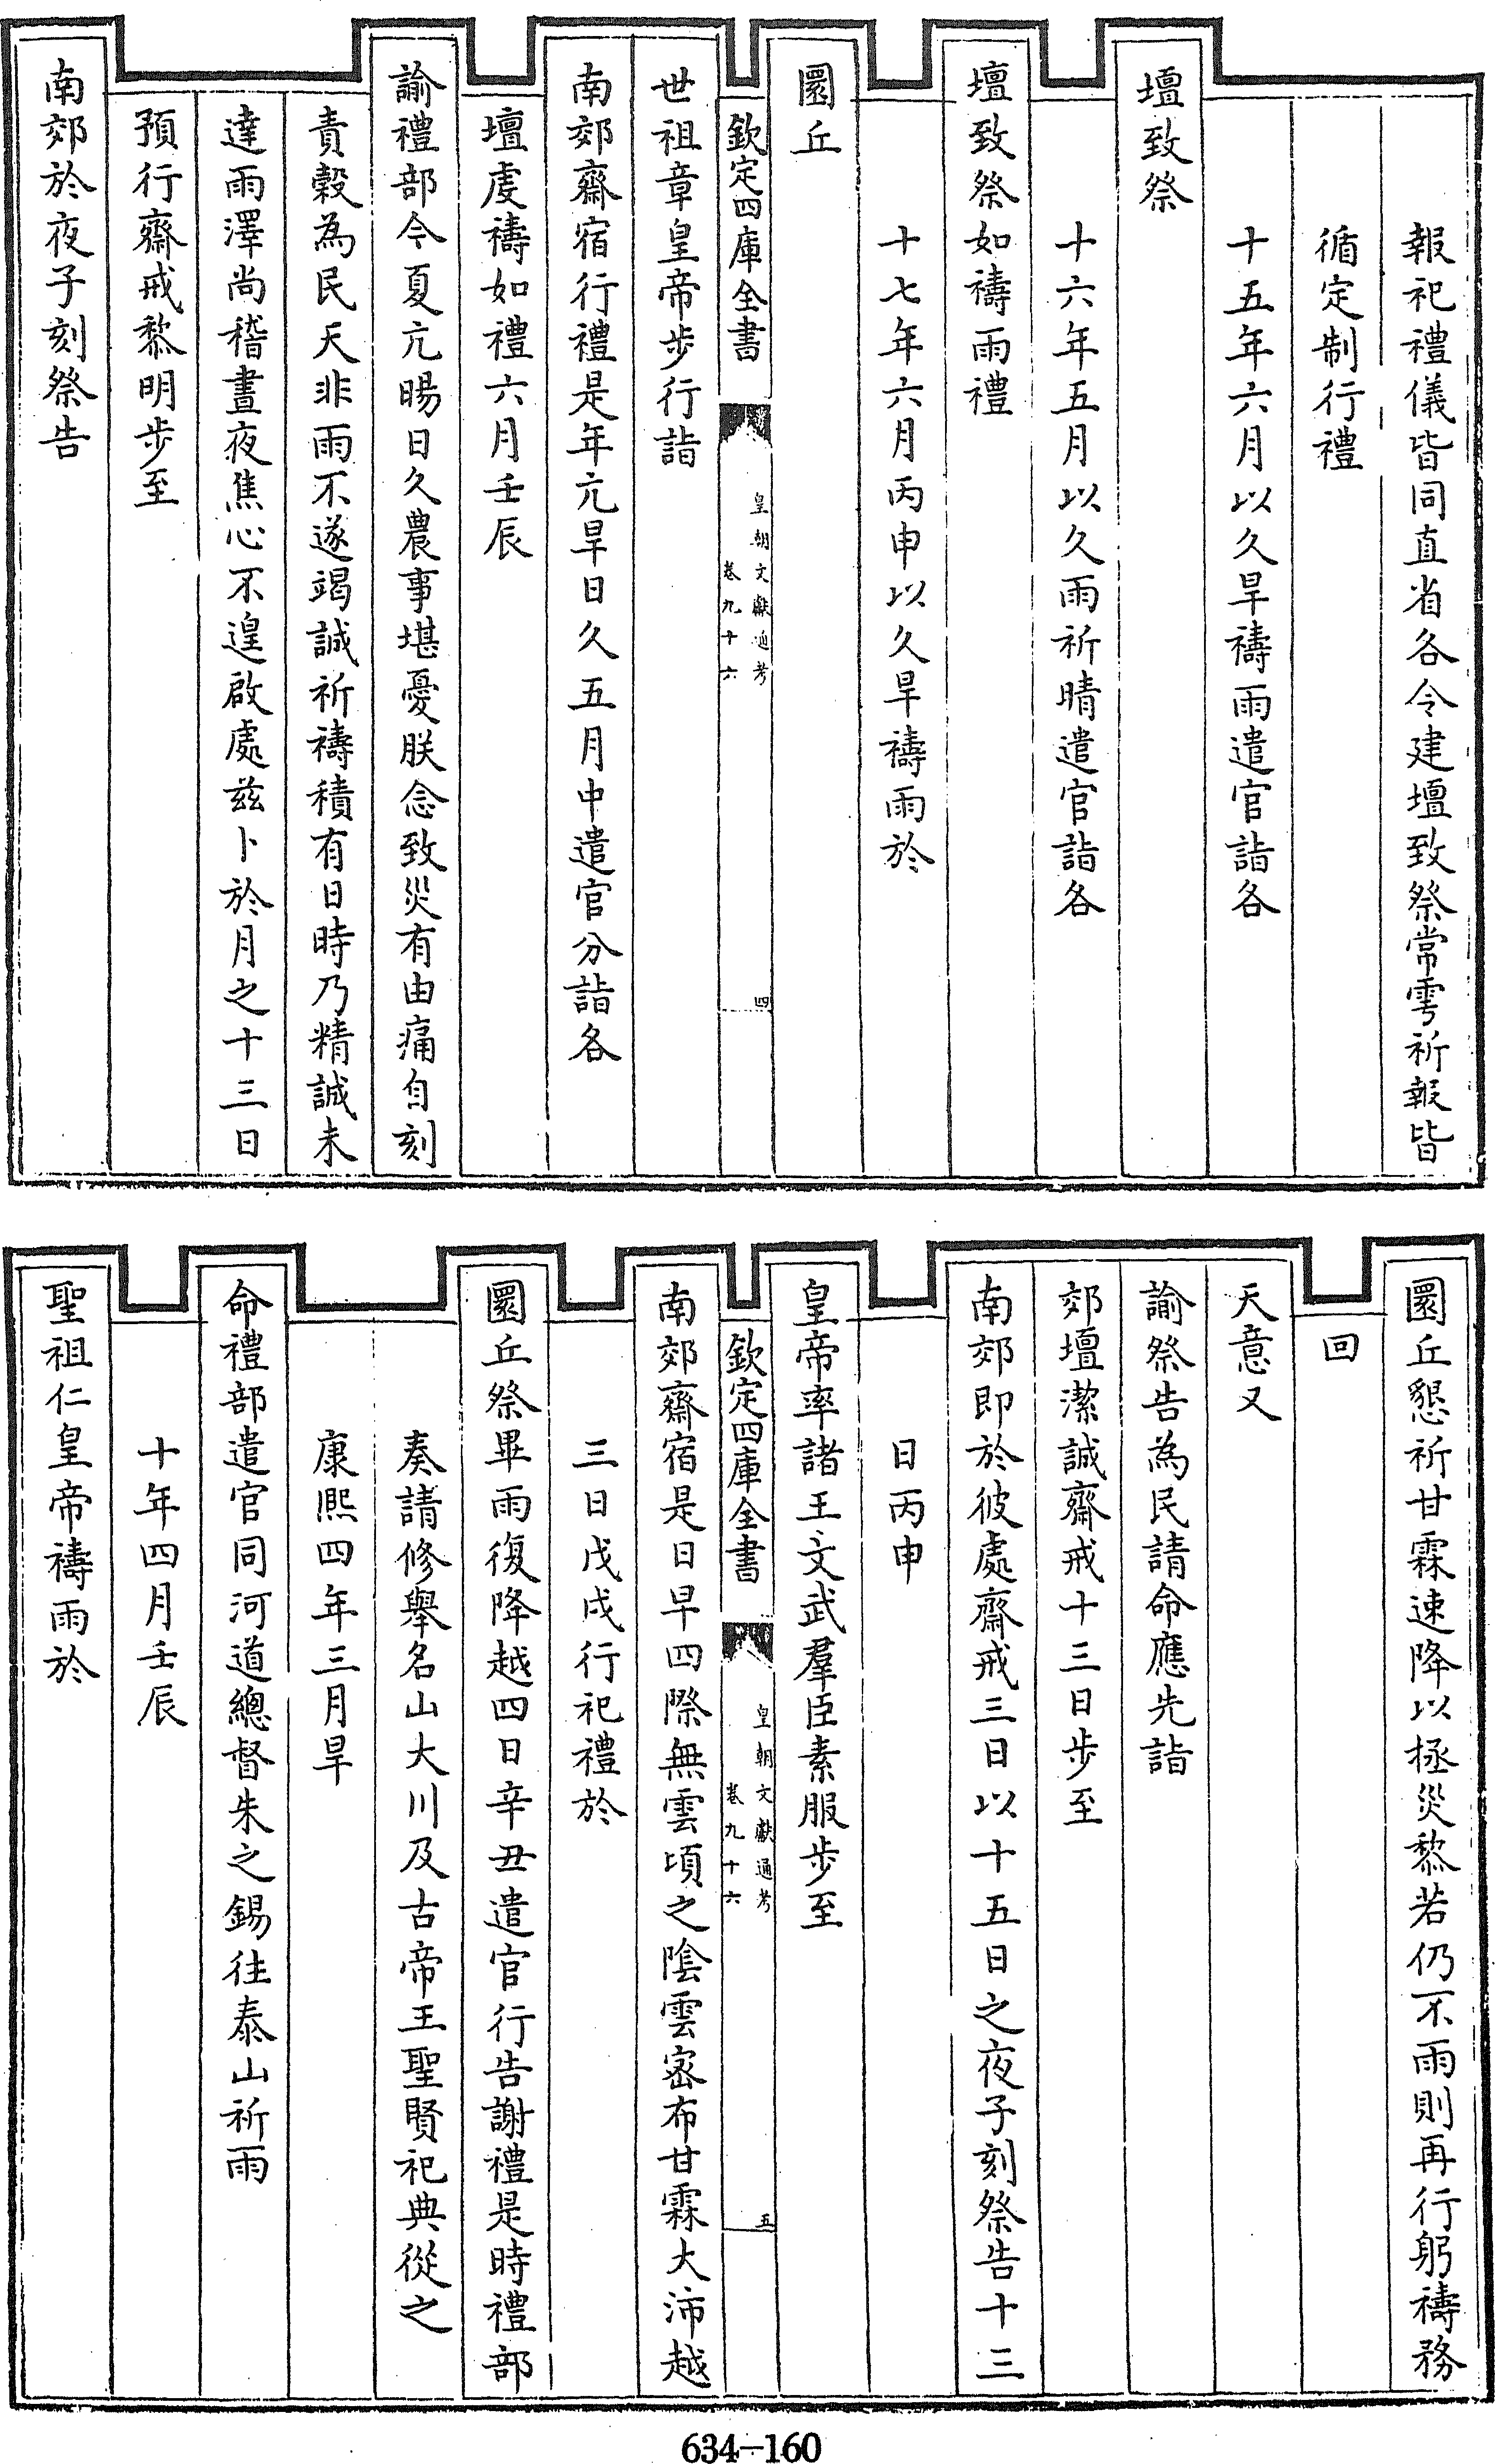 報祀禮儀皆同直省各令建壇致祭常雩祈報皆
循定制行禮
十五年六月以久旱禱雨遣官詣各
壇致祭
十六年五月以久雨祈晴遣官詣各
壇致祭如禱雨禮
十七年六月丙申以久旱禱雨於
圜丘
欽定四庫全書
皇朝文獻通考
卷九十六
四
世祖章皇帝步行詣
南郊齋宿行禮是年亢旱日久五月中遣官分詣各
壇虔禱如禮六月壬辰
諭禮部今夏亢暘日久農事堪憂朕念致災有由痛自刻
責穀為民天非雨不遂竭誠祈禱積有日時乃精誠未
達雨澤尚稽晝夜焦心不遑啟處茲卜於月之十三日
預行齋戒黎明步至
南郊於夜子刻祭告
圜丘懇祈甘霖速降以拯災黎若仍不雨則再行躬禱務
回
天意又
諭祭告為民請命應先詣
郊壇潔誠齋戒十三日步至
南郊即於彼處齋戒三日以十五日之夜子刻祭告十三
日丙申
皇帝率諸王文武羣臣素服步至
欽定四庫全書
皇朝文獻通考
卷九十六
五
南郊齋宿是日早四際無雲頃之陰雲密布甘霖大沛越
三日戊戌行祀禮於
圜丘祭畢雨復降越四日辛丑遣官行告謝禮是時禮部
奏請修舉名山大川及古帝王聖賢祀典從之
康熙四年三月旱
命禮部遣官同河道總督朱之錫往泰山祈雨
十年四月壬辰
聖祖仁皇帝禱雨於
634-160